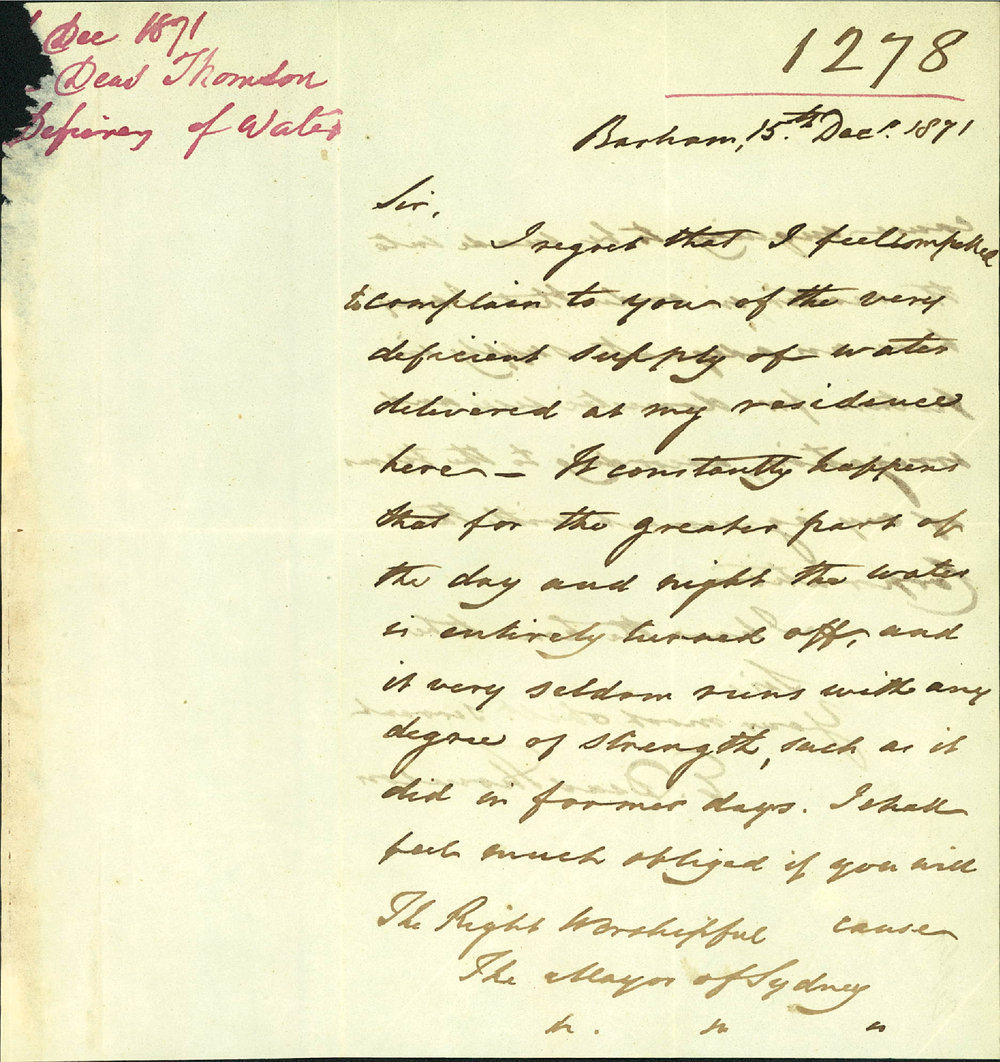 Dec 1871
Deas Thomson
Deficiency of Water
1278
Barham, 15th Decr. 1871
Sir,
I regret that I feel compelled
to complain to you of the very
deficient supply of water
delivered at my residence
here – It constantly happens
that for the greater part of
the day and night the water
is entirely turned off, and
it very seldom runs with any
degree of strength, such as it
did in former days. I shall
feel much obliged if you will
cause
The Right Worshipful
The Mayor of Sydney